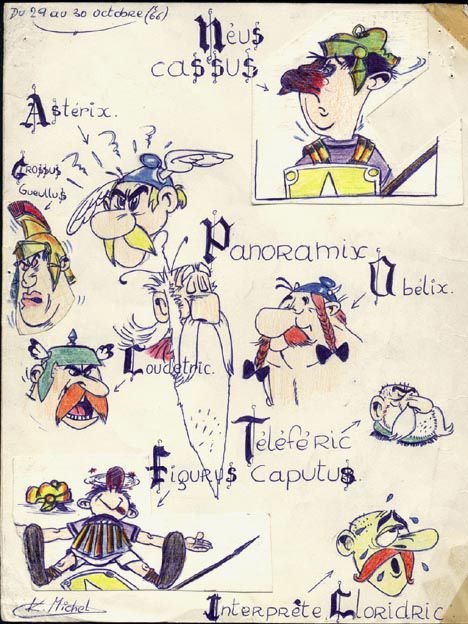 Du 29 au 30 octobre (66)
Néus
ca$$us
Astérix.
Gro$$us
Gueullus
Panoramix
Obélix.
Loudetric.
Téléféric
Figurus caputus.
K. Michel
Interprète, Cloridric